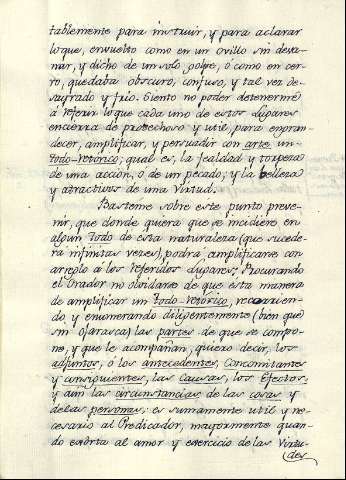 tablemente para instruir, y para aclarar
lo que, envuelto como en un ovillo sin deva-
nar, y dicho de un solo golpe, ó como en cer-
ro, quedaba obscuro, confuso, y tal vez de-
sagrado y frio. Siento no poder detenerme
á referir lo que cada uno de estos Lugares
encierra de provechoso y util, para engran-
decer, amplificar, y persuadir con arte un
todo-retorico; qual es, la fealdad y torpeza
de una accion, ó de un pecado; y la belleza
y atractivos de una Virtud.
Basteme sobre este punto preve-
nir, que donde quiera que se incidiere en
algun todo de esta naturaleza (que sucede-
rá infinitas veces), podrá amplificarse con
arreglo á los referidos Lugares; Procurando
el Orador no olvidarse de que esta manera
de amplificar un todo-retórico, recorrien-
do y enumerando diligentemente (bien que
sin ojarasca) las partes de que se compo-
ne, y que le acompañan, quiero decir, los
adjuntos, ó los antecedentes, Concomitantes
y consiguientes, las Causas, los Efectos,
y aun las circunstancias de las cosas y
de las personas; es sumamente util y ne-
cesario al Predicador, mayormente quan-
do exôrta al amor y exercicio de las Virtu-
des